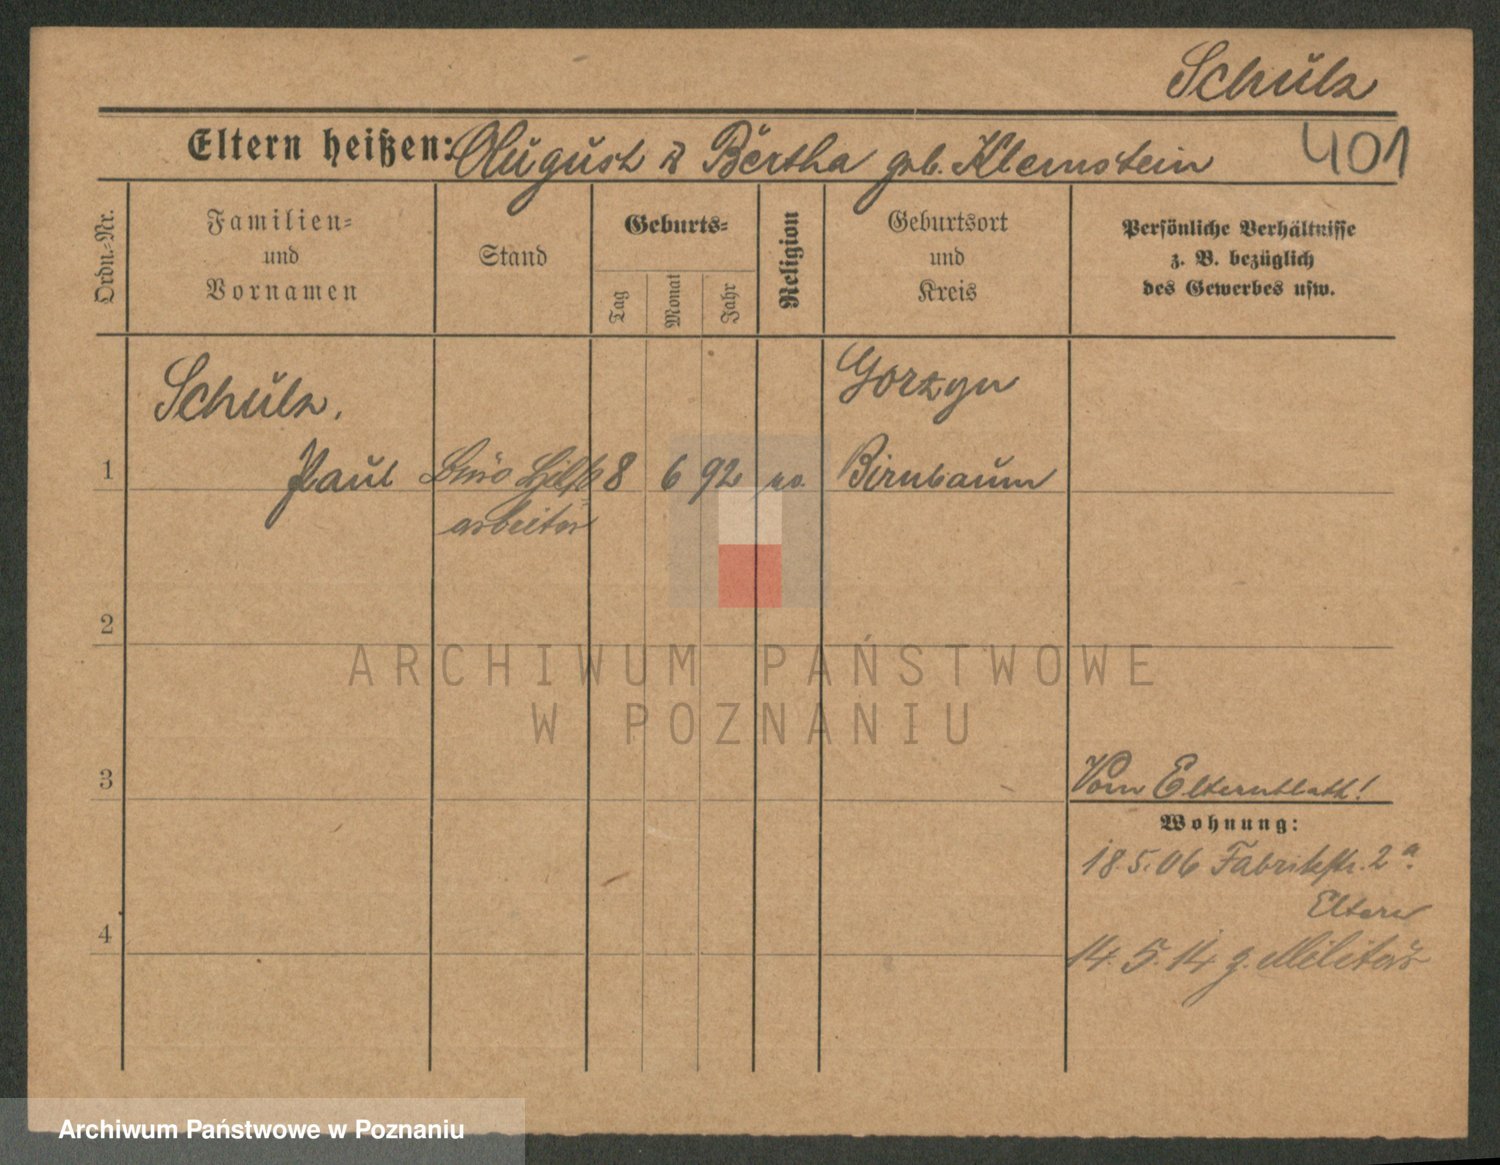 Schulz
401
Eltern heißen: August & Bertha geb. Klemstein
Ordn.-Nr.
Familien-
und
Vornamen
Stand
Geburts-
Tag
Monat
Jahr
Religion
Geburtsort
und
Kreis
Persönliche Verhältnisse
z. B. bezüglich
des Gewerbes usw.
Schulz,
Gorzyn
1 Paul Büro Hilfs 8 6 92 Birnbaum
arbeiter
2
ARCHIWUM PAŃSTWOWE
W POZNANIU
3
Vom Elternblatt!
Wohnung:
18.5.06 Fabrikstr. 2a.
Eltern
4
14.5.14 z. Militär
Archiwum Państwowe w Poznaniu